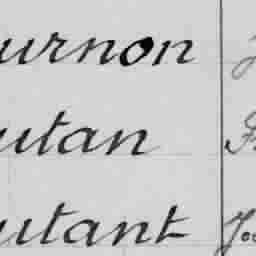 urnon
utan
utant